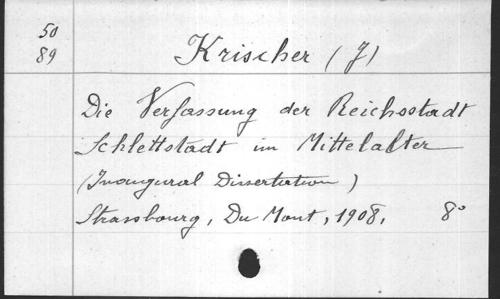 50
89
Krischer (J)
Die Verfassung der Reichsstadt
Schlettstadt im Mittelalter
(Inaugural Dissertation)
Strassbourg, Du Mont, 1908. 8°